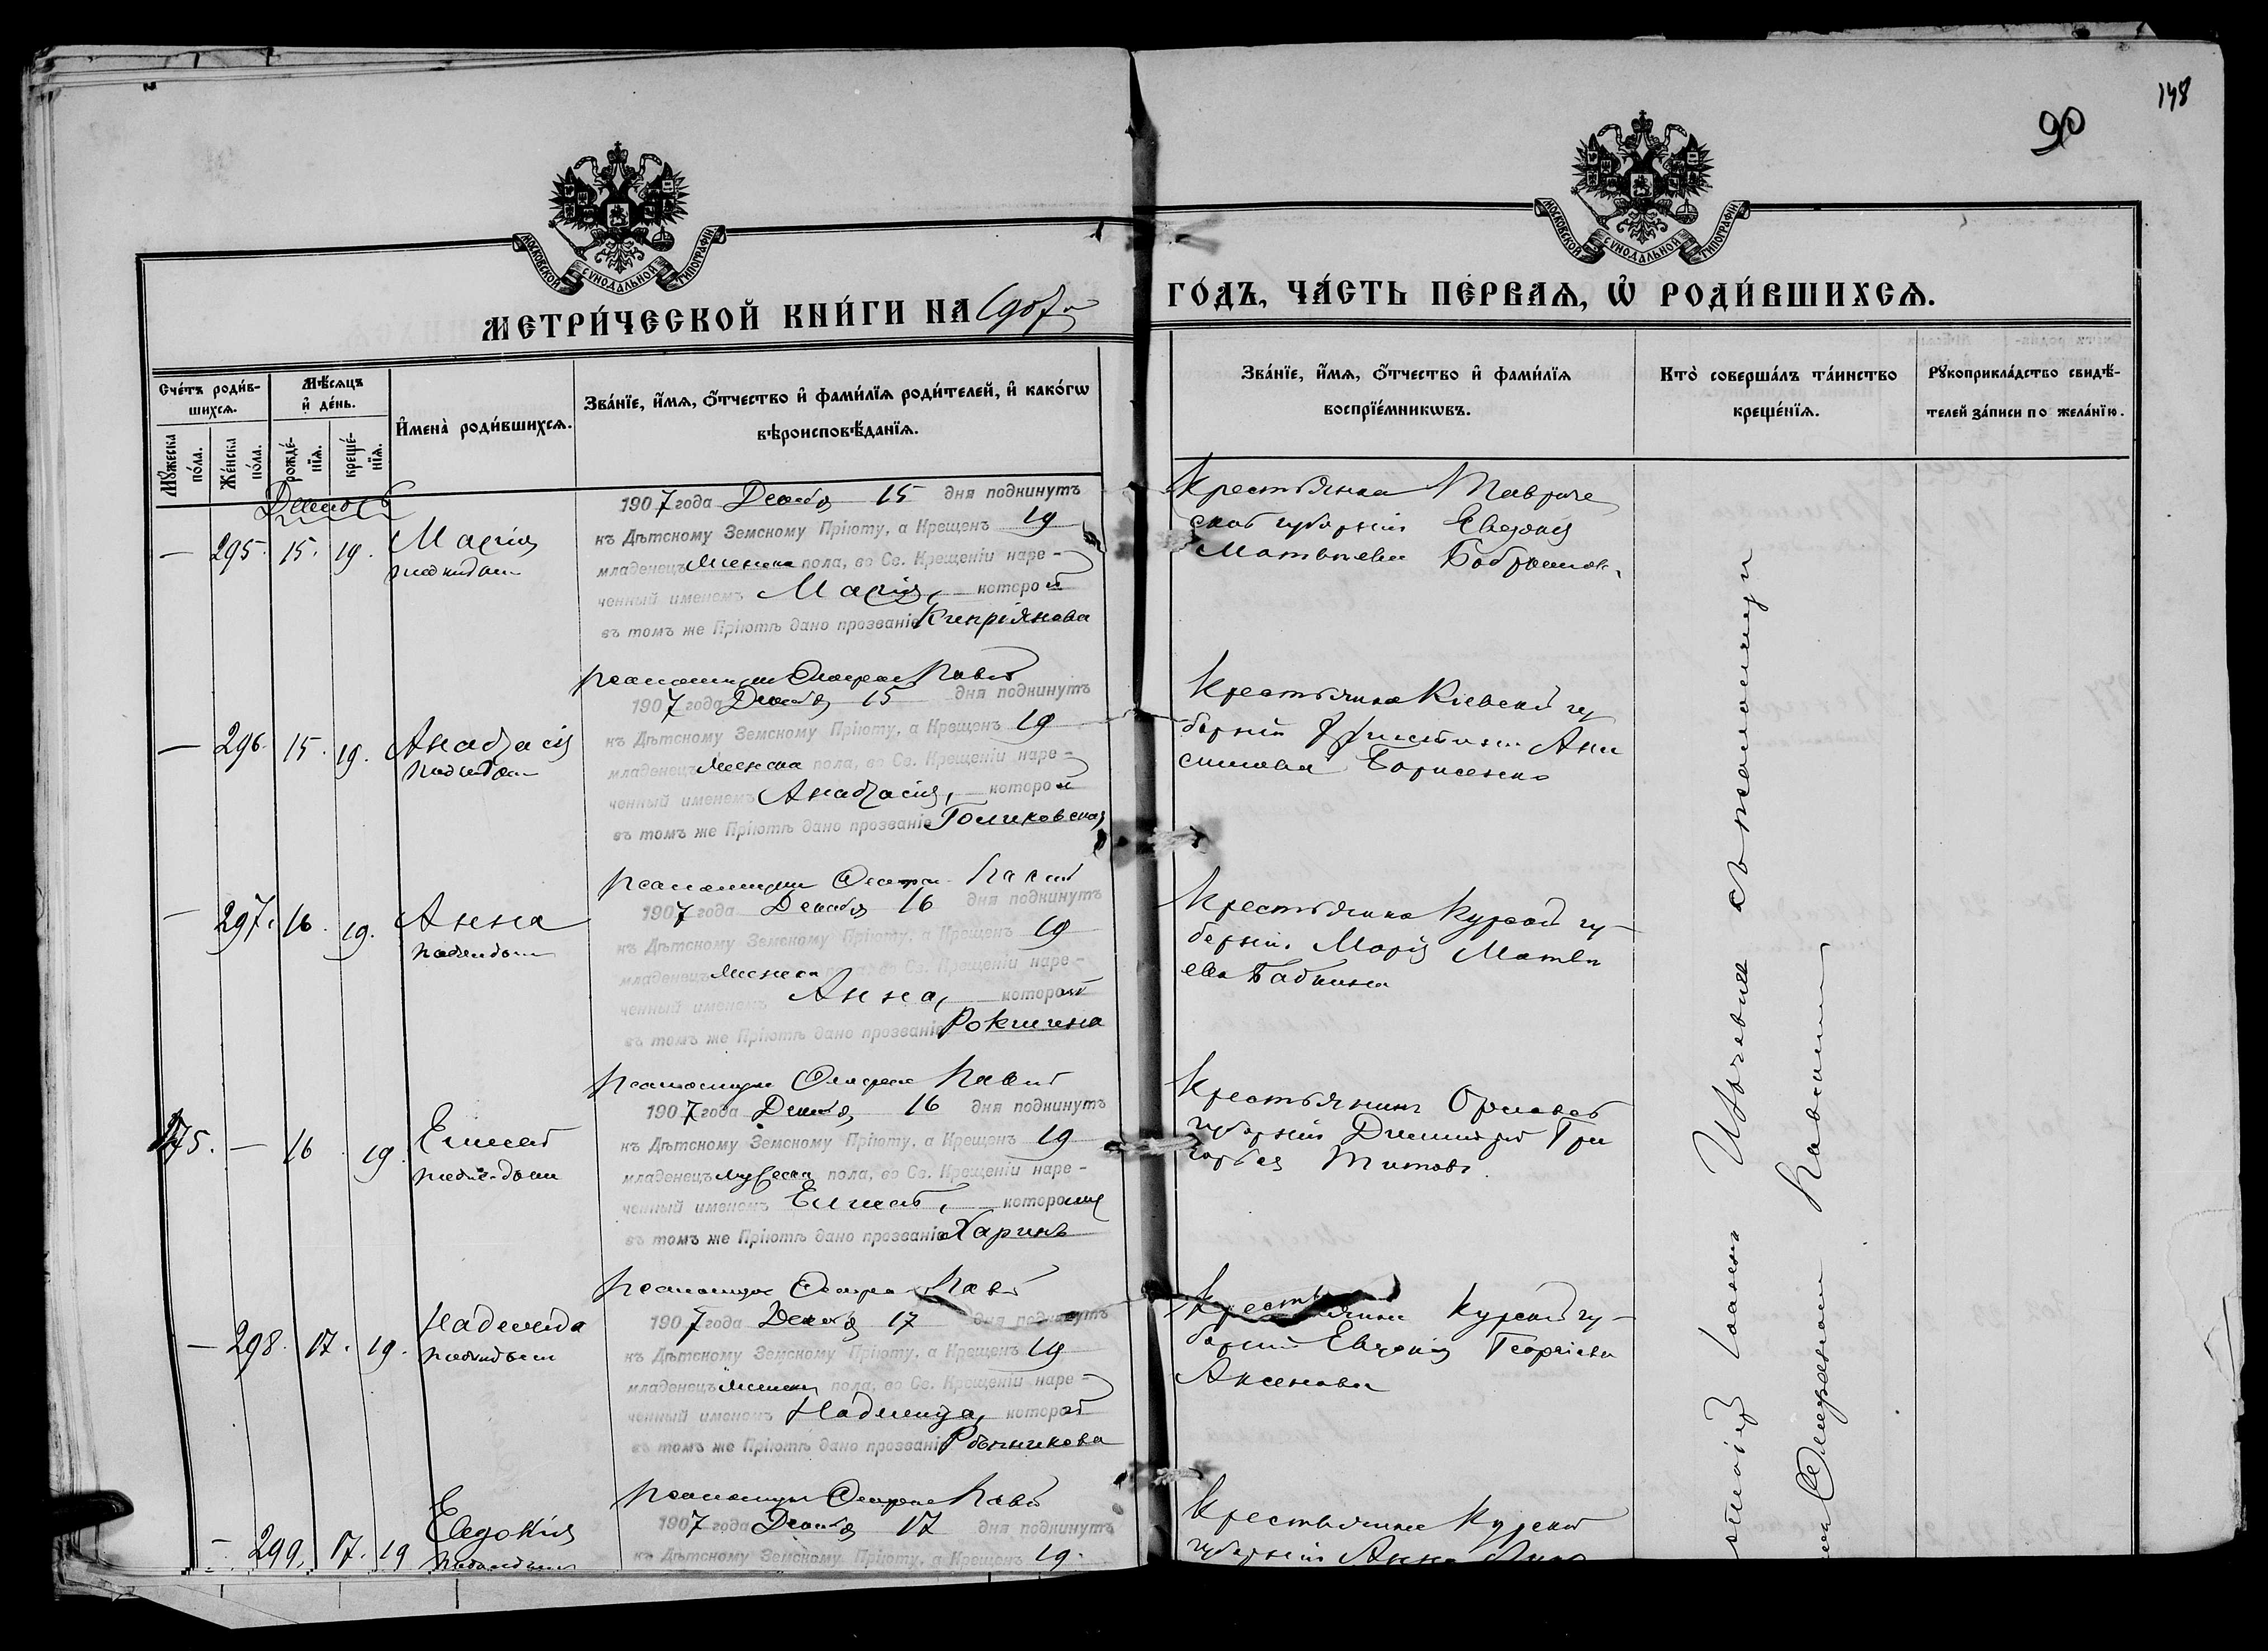 148
90
МОСКОВСКОЙ СѴНОДАЛЬНОЙ ТИПОГРАФІИ
МОСКОВСКОЙ СѴНОДАЛЬНОЙ ТИПОГРАФІИ
МЕТРИ́ЧЕСКОЙ КНИ́ГИ НА 1907 ГО́ДЪ, ЧА́СТЬ ПЕ́РВАЯ, Ѡ҆ РОДИ́ВШИХСЯ.
Сче́тъ роди́в-
шихся.
Мꙋ́жеска
по́ла.
Же́нска
по́ла.
Мѣ́сяцъ
и҆ де́нь.
рожде́-
нїя.
креще́-
нїя.
И҆мена̀ роди́вшихся.
Зва́нїе, и҆́мя, ѻ҆́тчество и҆ фами́лїя роди́телей, и҆ како́гѡ
вѣроисповѣ́данїя.
Зва́нїе, и҆́мя, ѻ҆́тчество и҆ фами́лїя
воспрїе́мникѡвъ.
Кто̀ соверша́лъ та́инство
креще́нїя.
Рꙋкоприкла́дство свидѣ́-
телей за́писи по жела́нїю.
Декабрь
— 295. 15. 19. Марія
подкидыш
1907 года Декабря 15 дня подкинутъ
къ Дѣтскому Земскому Пріюту, а Крещенъ 19
младенецъ женска пола, во Св. Крещеніи наре-
ченный именемъ Марія, которой
въ томъ же Пріютѣ дано прозваніе Кипріянова
Крестьянка Тавриче
ской губерніи Евдокія
Матвѣева
— 296. 15. 19. Анастасія
подкидыш
1907 года Декабря 15 дня подкинутъ
къ Дѣтскому Земскому Пріюту, а Крещенъ 19
младенецъ женска пола, во Св. Крещеніи наре-
ченный именемъ Анастасія, которой
въ томъ же Пріютѣ дано прозваніе Голиковская
Крестьянка Кіевской гу
берніи Христина Они
симова Борисенко
— 297. 16. 19. Анна
подкидыш
1907 года Декабря 16 дня подкинутъ
къ Дѣтскому Земскому Пріюту, а Крещенъ 19
младенецъ женска пола, во Св. Крещеніи наре-
ченный именемъ Анна, которой
въ томъ же Пріютѣ дано прозваніе
Крестьянка Курской гу-
берніи Марія Матвѣ
ева Бабкина
275. — 16 19. Елисей
подкидыш
1907 года Декабря 16 дня подкинутъ
къ Дѣтскому Земскому Пріюту, а Крещенъ 19
младенецъ мужеска пола, во Св. Крещеніи наре-
ченный именемъ Елисей, которому
въ томъ же Пріютѣ дано прозваніе Харинъ
Крестьянинъ Орловской
губерніи Димитрій Гри
горьев Титовъ
— 298. 17. 19. Надежда
подкидыш
1907 года Декабря 17 дня подкинутъ
къ Дѣтскому Земскому Пріюту, а Крещенъ 19
младенецъ женска пола, во Св. Крещеніи наре-
ченный именемъ Надежда, которой
въ томъ же Пріютѣ дано прозваніе
Крестьянка Курской гу-
берніи Евдокія Георгіева
Аксенова
— 299. 17. 19 Евдокія
подкидыш
1907 года Декабря 17 дня подкинутъ
къ Дѣтскому Земскому Пріюту, а Крещенъ 19.
Крестьянка Курской
губерніи Анна